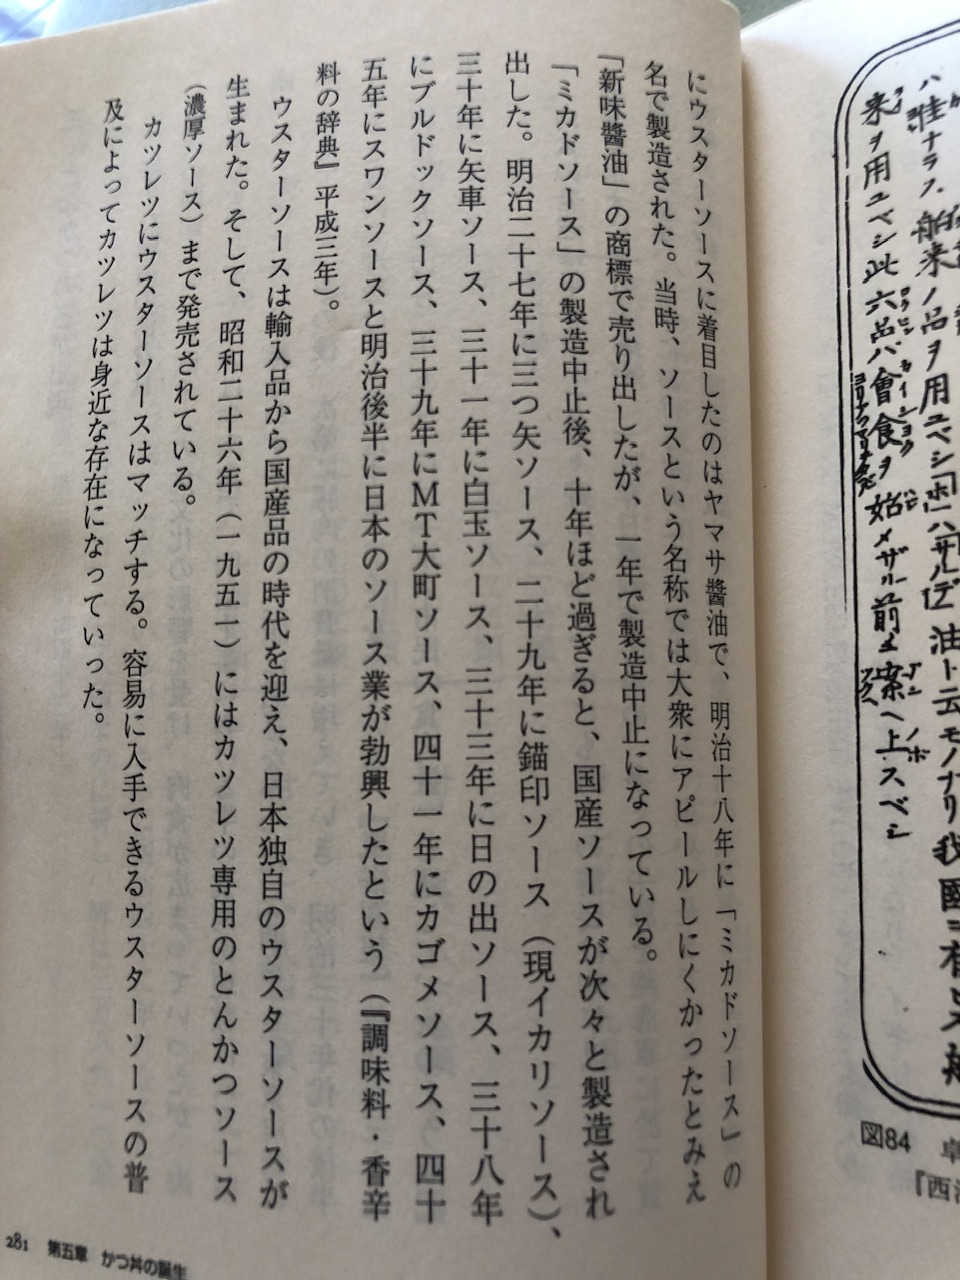 ハ雖ナラズ舶来ノ品ヲ用ユベシ
油ト云モノナリ我國ニ有
来ヲ用ユベシ此六品ハ會食ヲ始メザル前ヨ案ヘ上スベシ
図84
『西
にウスターソースに着目したのはヤマサ醬油で、明治十八年に「ミカドソース」の
名で製造された。当時、ソースという名称では大衆にアピールしにくかったとみえ
「新味醬油」の商標で売り出したが、一年で製造中止になっている。
「ミカドソース」の製造中止後、十年ほど過ぎると、国産ソースが次々と製造され
出した。明治二十七年に三つ矢ソース、二十九年に錨印ソース（現イカリソース）、
三十年に矢車ソース、三十一年に白玉ソース、三十三年に日の出ソース、三十八年
にブルドックソース、三十九年にMT大町ソース、四十一年にカゴメソース、四十
五年にスワンソースと明治後半に日本のソース業が勃興したという（『調味料・香辛
料の辞典』平成三年）。
ウスターソースは輸入品から国産品の時代を迎え、日本独自のウスターソースが
生まれた。そして、昭和二十六年（一九五一）にはカツレツ専用のとんかつソース
（濃厚ソース）まで発売されている。
カツレツにウスターソースはマッチする。容易に入手できるウスターソースの普
及によってカツレツは身近な存在になっていった。
281 第五章 かつ丼の誕生